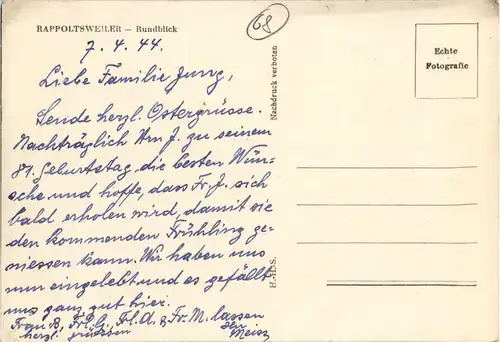 RAPPOLTSWEILER — Rundblick
68
7. 4. 44.
Echte
Fotografie
Nachdruck verboten
Liebe Familie Jung,
Sende herzl. Ostergrüsse.
Nachträglich Hrn J. zu seinem
81. Geburtstag die besten Wün-
sche und hoffe, dass Fr. J. sich
bald erholen wird, damit sie
den kommenden Frühling ge-
niessen kann. Wir haben uns
nun eingelebt und es gefällt
uns ganz gut hier.
Frau B, Frl. G., Frl. A. & Fr. M. lassen
herzl. grüssen
H.-H.-S.